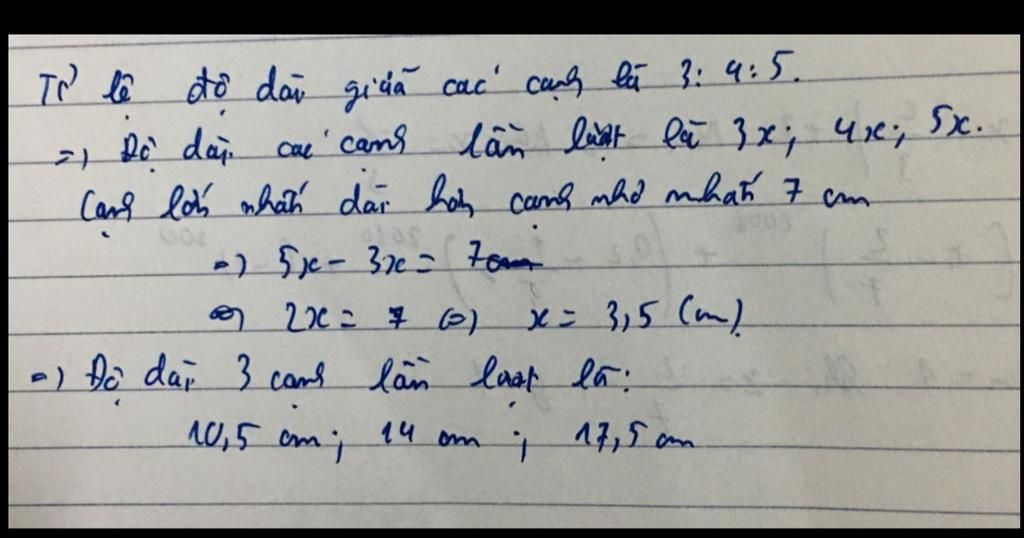 Tỉ lệ độ dài giữa các cạnh là 3:4:5.
=) Độ dài các cạnh lần lượt là 3x; 4x; 5x.
Cạnh lớn nhất dài hơn cạnh nhỏ nhất 7 cm
=) 5x - 3x = 7
(=) 2x = 7 (=) x = 3,5 (cm)
=) Độ dài 3 cạnh lần lượt là:
10,5 cm; 14 cm; 17,5 cm